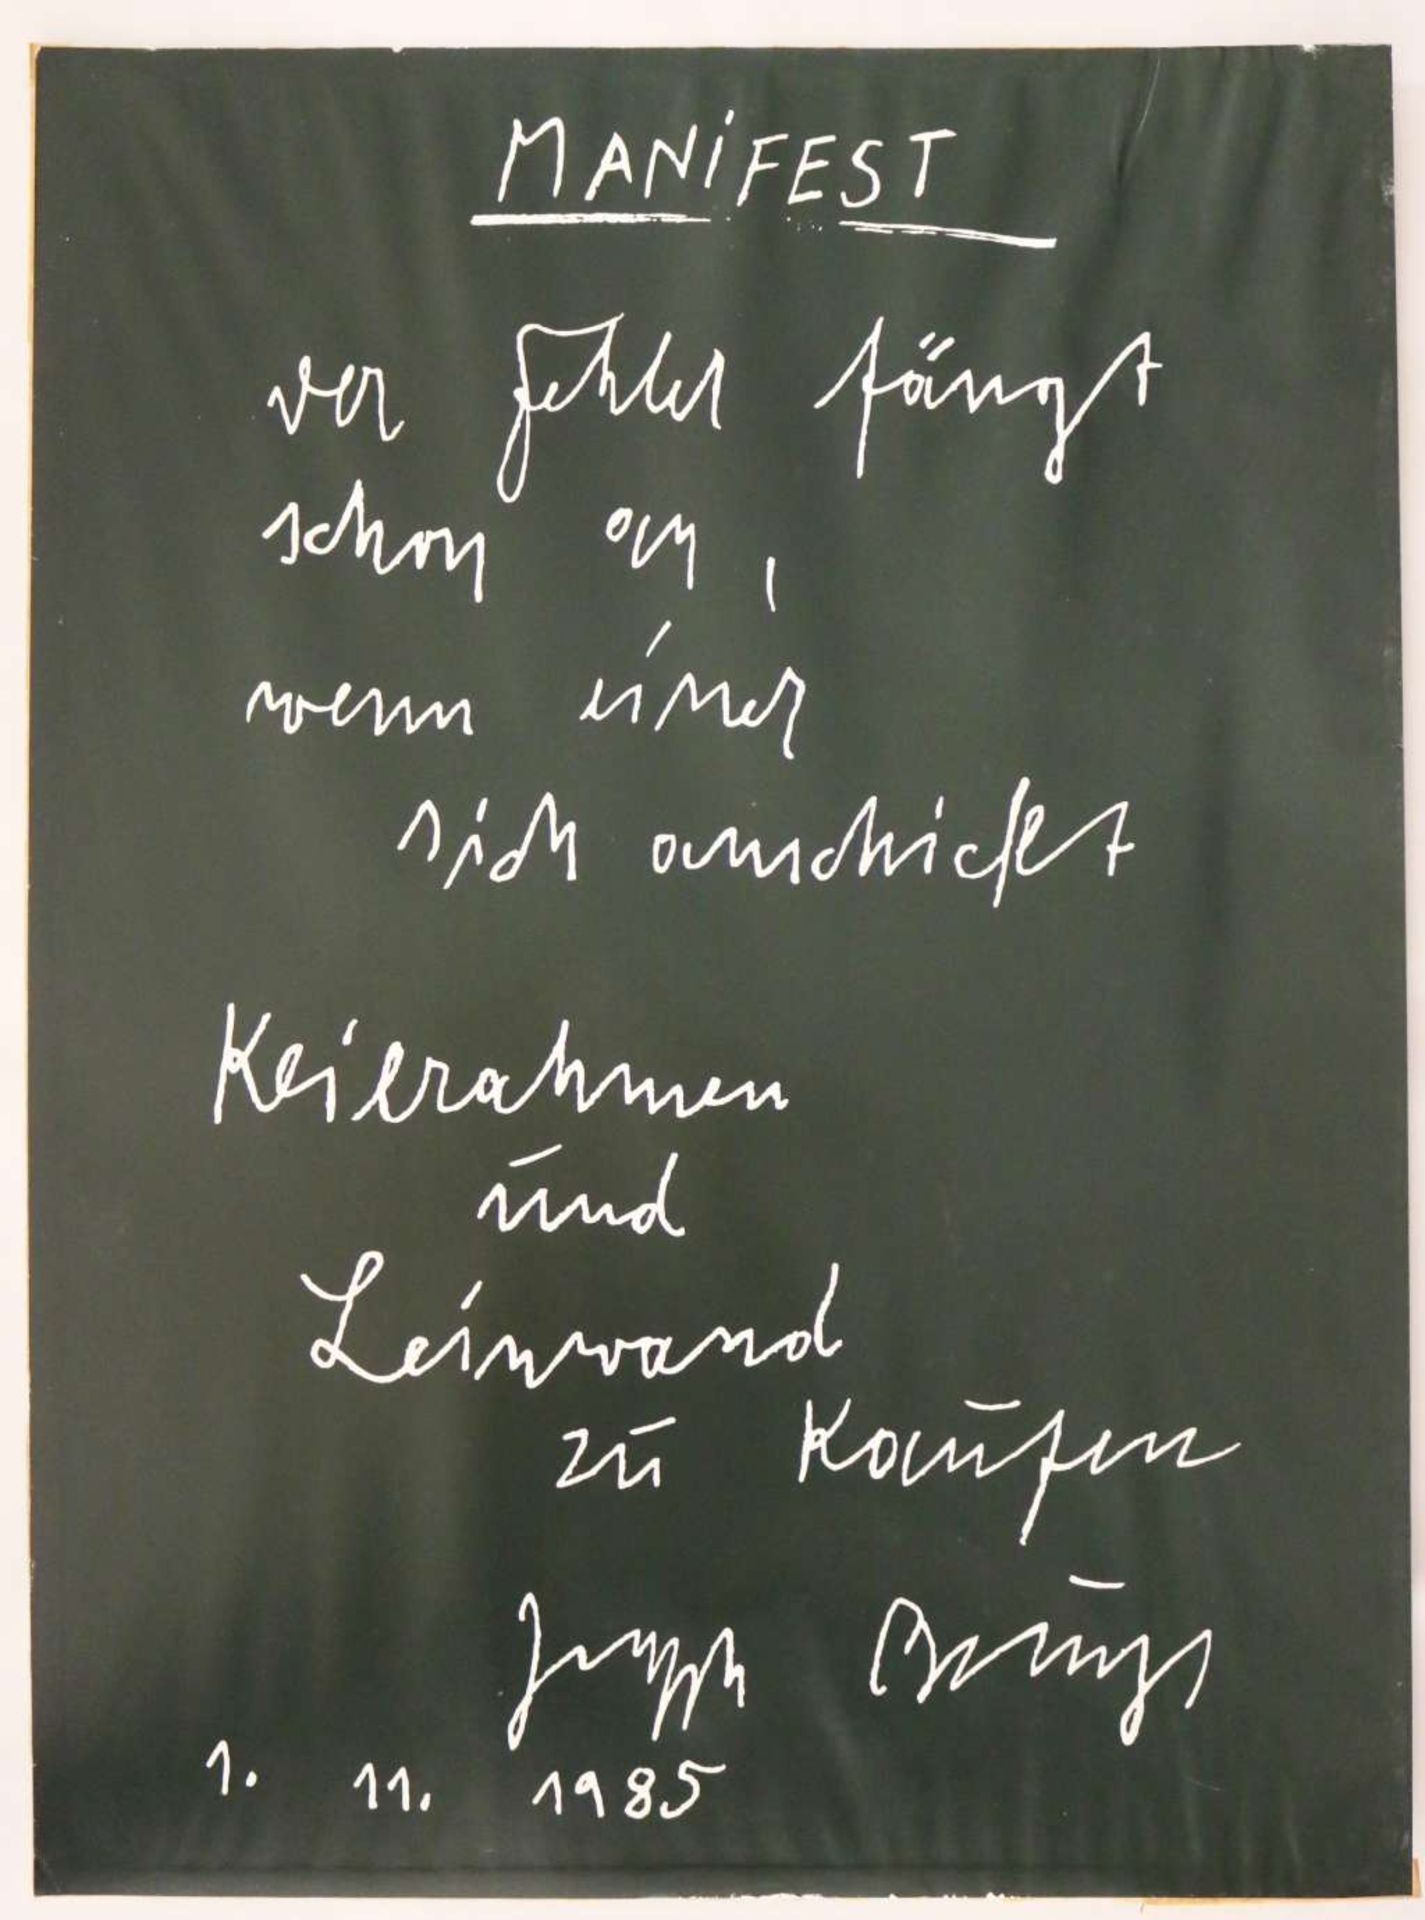 MANiFEST
der Fehler fängt
schon an,
wenn einer
sich anschickt
Keilrahmen
und
Leinwand
zu Kaufen
Joseph Beuys
1. 11. 1985